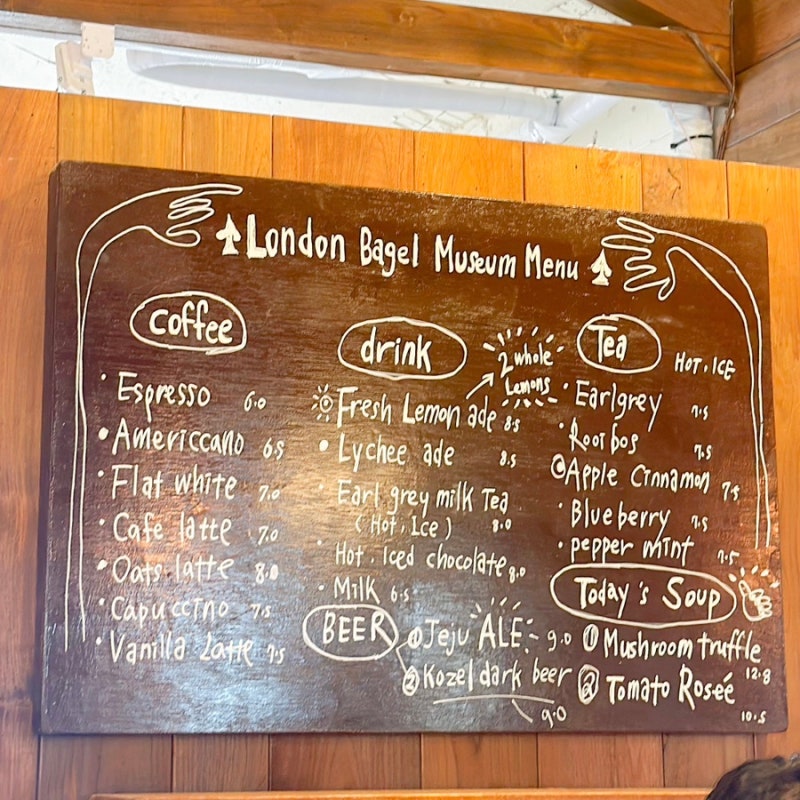 London Bagel Museum Menu
coffee
Espresso 6.0
Americcano 6.5
Flat white 7.0
Cafe latte 7.0
Oats latte 8.0
Capuccino 7.5
Vanilla Latte 7.5
drink
2 whole
Lemons
Fresh Lemon ade 8.5
Lychee ade 8.5
Earl grey milk Tea
(Hot, Ice) 8.0
Hot. Iced chocolate 8.0
Milk 6.5
BEER
① Jeju ALE 9.0
② Kozel dark beer
9.0
Tea
HOT, ICE
Earlgrey 7.5
Rooibos 7.5
Apple Cinnamon 7.5
Blueberry 7.5
pepper mint 7.5
Today's Soup
① Mushroom truffle
12.8
② Tomato Roseé
10.5